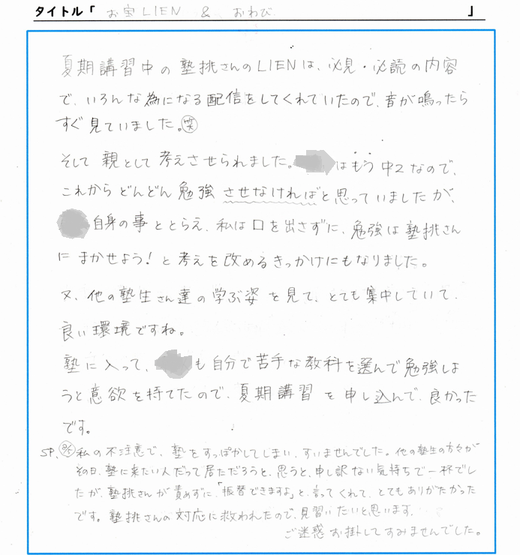 タイトル「 お宝LIEN & おわび 」
夏期講習中の塾挑さんのLIENは、必見・必読の内容
で、いろんな為になる配信をしてくれていたので、音が鳴ったら
すぐ見ていました。笑
そして 親として 考えさせられました。 はもう 中2 なので、
これから どんどん 勉強 させなければと思っていましたが、
自身の事ととらえ、私は口を出さずに、勉強は塾挑さん
に まかせよう！と 考えを改めるきっかけにもなりました。
又、他の塾生さん達の学ぶ姿を見て、とても集中していて、
良い環境ですね。
塾に入って、 も自分で苦手な教科を選んで勉強しよ
うと意欲を持てたので、夏期講習を申し込んで、良かった
です。
SP. 私の不注意で、塾をすっぽかしてしまい、すいませんでした。他の塾生の方々が
その日、塾に来たい人だって居ただろうと、思うと、申し訳ない気持ちで一杯でし
たが、塾挑さんが責めずに、「振替できますよ」と、言ってくれて、とてもありがたかった
です。塾挑さんの対応に救われたので、見習いたいと思います。
ご迷惑お掛してすみませんでした。